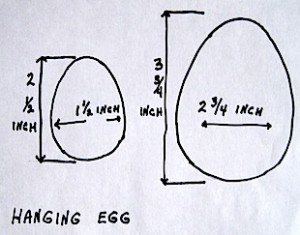 2
1/2
INCH
1 1/2 INCH
3
3/4
INCH
2 3/4 INCH
HANGING EGG